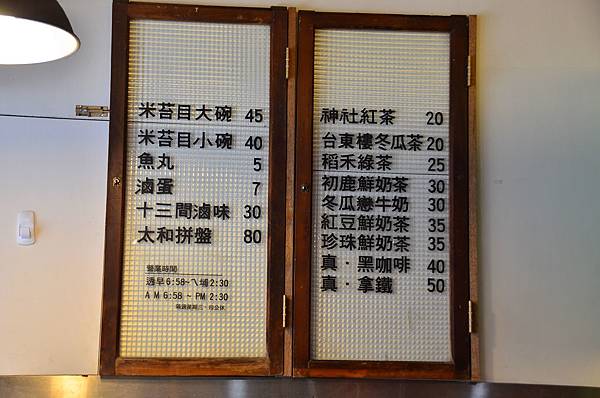 米苔目大碗 45
米苔目小碗 40
魚丸 5
滷蛋 7
十三間滷味 30
太和拼盤 80
營業時間
透早6:58~ㄟ埔2:30
AM 6:58 ~ PM 2:30
神社紅茶 20
台東樓冬瓜茶 20
稻禾綠茶 25
初鹿鮮奶茶 30
冬瓜戀牛奶 30
紅豆鮮奶茶 35
珍珠鮮奶茶 35
真·黑咖啡 40
真·拿鐵 50